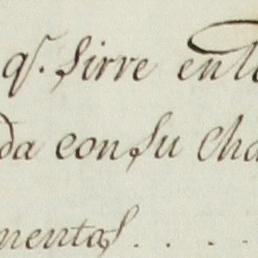 q.ͤ sirve en
da con su cha
mentos. . . .